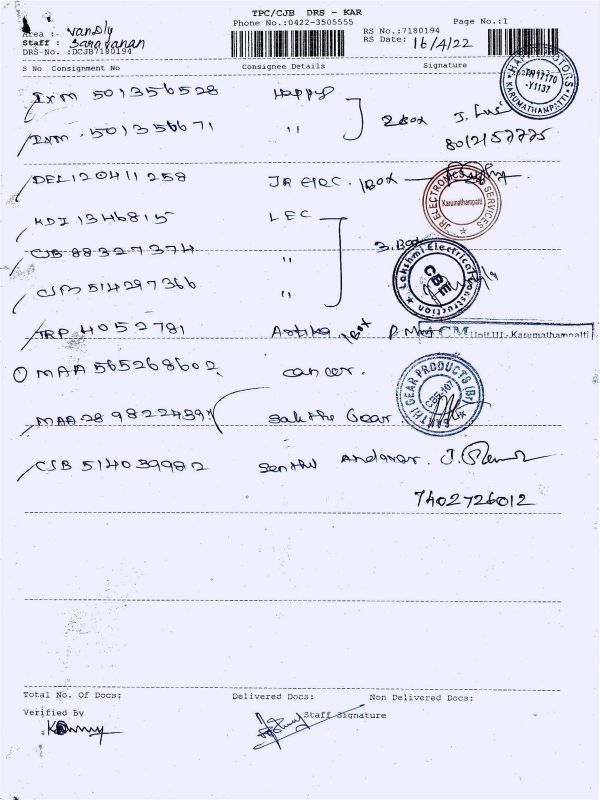 TPC/CJB DRS - KAR
Phone No.:0422-3505555 Page No.:1
Area :. Vandly
Staff : Saravanan
DRS-No. :DCJB7180194
RS No.:7180194
RS Date: 16/4/22
S No Consignment No Consignee Details Signature
IXM 501356528 Happy
IXM 501356671 " 2 Box
8012157775
DEL120411258 JR Elec. 1 Box
JR ELECTRONICS AND SERVICES
Karumathampatti
KDI 1346815 LEC
CJB 88327374 " 3. Box
CJB 514297366 "
Lakshmi Electrical Construction
CBE
TRP 4052781 Astika 1 Box
Unit III - Karumathampatti
MAA 565268602 cancer.
MAA 289822439 Sakthi Gear.
GEAR PRODUCTS
CSB 514039982 Senthil Andavar. J.
7402726012
Total No. Of Docs: Delivered Docs: Non Delivered Docs:
Verified By
Staff Signature